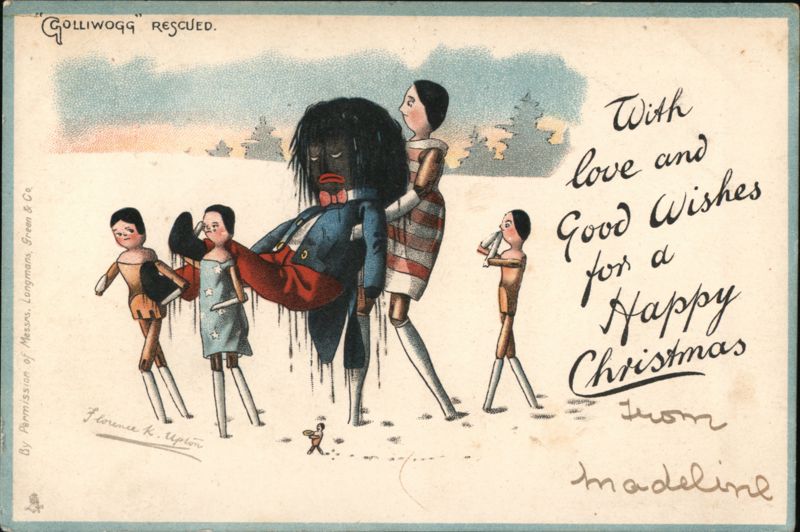 "GOLLIWOGG" RESCUED.
With
love and
Good Wishes
for a
Happy
Christmas
From
Madeline
Florence K. Upton
By Permission of Messrs. Longmans, Green & Co.